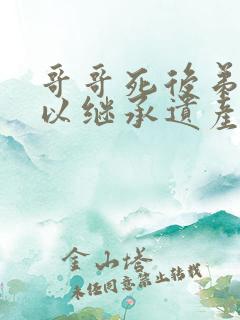 哥哥死后弟
以继承遗产
金山塔
未经同意禁止转载